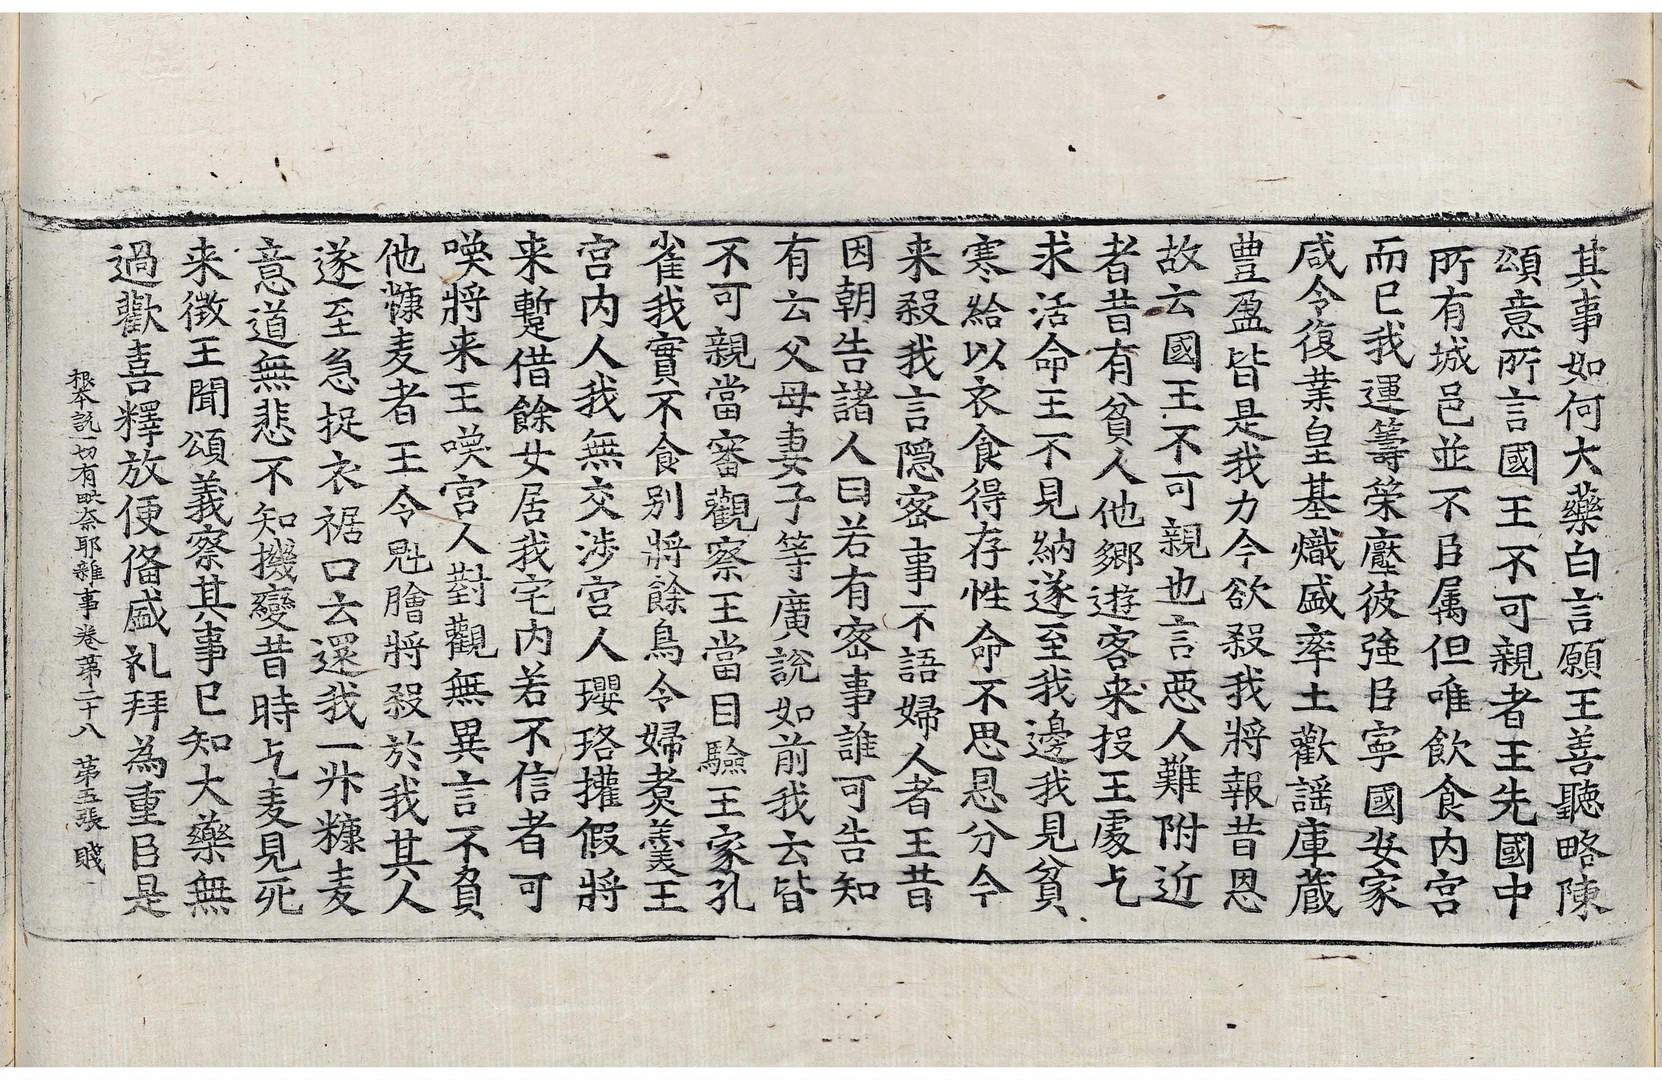 其事如何大藥白言願王善聽略陳
頌意所言國王不可親者王先國中
所有城邑並不臣属但唯飲食内宮
而已我運籌策壓彼強臣寧國安家
咸令復業皇基熾盛率土歡謡庫蔵
豊盈皆是我力今欲殺我將報昔恩
故云國王不可親也言悪人難附近
者昔有貧人他鄉遊客来投王處乞
求活命王不見納遂至我邊我見貧
寒給以衣食得存性命不思恩分今
来殺我言隠密事不語婦人者王昔
因朝告諸人曰若有密事誰可告知
有云父母妻子等廣說如前我云皆
不可親當審觀察王當目驗王家孔
雀我實不食别將餘鳥令婦煮羹王
宮内人我無交渉宮人瓔珞權假將
来蹔借餘女居我宅内若不信者可
喚將来王喚宮人對觀無異言不負
他𪍿麦者王令魁膾將殺於我其人
遂至急捉衣裾口云還我一升𪍿麦
意道無悲不知機變昔時乞麦見死
来徴王聞頌義察其事已知大藥無
過歡喜釋放便俻盛礼拜為重臣是
根本說一切有毗奈耶雜事卷第二十八 第五張 賤